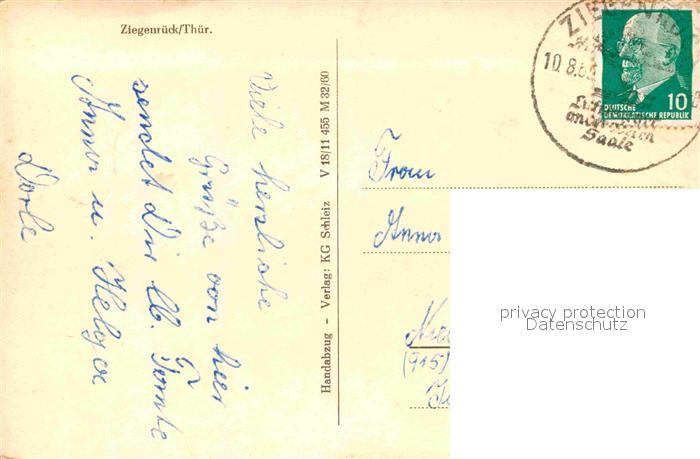 Ziegenrück/Thür.
Viele herzliche
Grüße von hier
sendet Dir lb. Tante
Anna u. Helga
Dorle
Handabzug - Verlag: KG Schleiz V 18/11 455 M 32/60
ZIEGENRÜ
10.8.6
an der oberen
Saale
10
DEUTSCHE
DEMOKRATISCHE REPUBLIK
Frau
Anna
(915)
privacy protection
Datenschutz